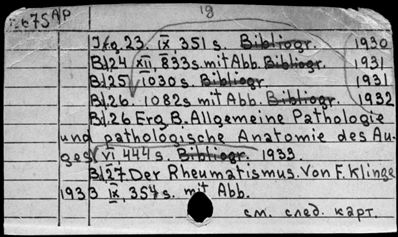 19
Jg. 23. IX, 351 s. Bibliogr. 1930
Bd.24 XII, 833s. mit Abb. Bibliogr. 1931
Bd.25 1030 s. Bibliogr. 1931
Bd.26. 1082 s mit Abb. Bibliogr. 1932
Bd.26 Erg. B. Allgemeine Pathologie
und pathologische Anatomie des Au-
ges VI, 444 s. Bibliogr. 1933.
Bd.27 Der Rheumatismus. Von F. Klinge
1933 IX, 354 s. mit Abb.
см. след. карт.